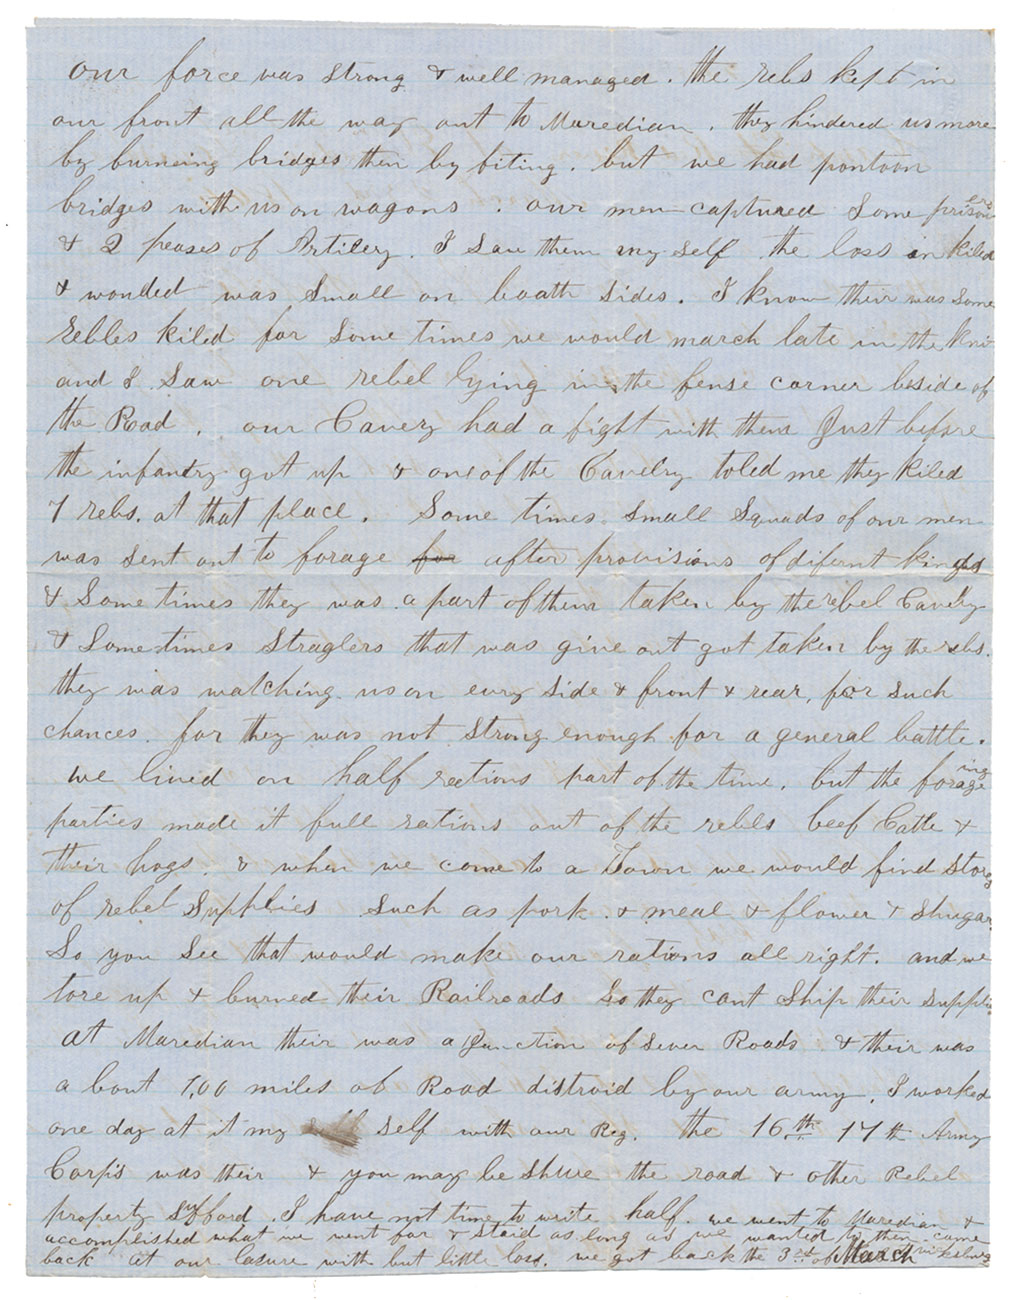 our force was strong & well managed. the rebs kept in
our front all the way out to Maredian. they hindered us more
by burneing bridges then by fiting. but we had pontoon
bridges with us on wagons. our men captured Some prisoners
& 2 peases of Artilery. I Saw them my self the loss in kiled
& wonded was Small on boath Sides. I know their was Some
Rebbles kiled for Some times we would march late in the
and I Saw one rebel lying in the fense corner beside of
the Road. our Cavery had a fight with them Just before
the infantry got up & one of the Cavelry toled me they kiled
7 rebs. at that place. Some times Small Squads of our men
was Sent out to forage for after provisions of difernt kinds
& Some times they was a part of them taken by the rebel Cavelry
& Some times Straglers that was give out got taken by the rebs.
they was watching us on evry Side & front & rear, for Such
chances. for they was not Strong enough for a general battle.
we lived on half rations part of the time. but the forageing
parties made it full rations out of the rebels beef Catle &
their hogs. & when we come to a Town we would find Stores
of rebel Supplies Such as pork & meal & flower & Shugar
So you See that would make our rations all right. and we
tore up & burned their Railroads So they cant Ship their Supplies
at Maredian their was a Junction of Sever Roads. & their was
a bout 100 miles of Road distroid by our army. I worked
one day at it my self with our Reg. the 16th 17th Army
Corps was their & you may be Shure the road & other Rebel
property Sufford. I have not time to write half. we went to Maredian &
accomplished what we went for & Staid as long as we wanted to then came
back at our leasure with but little loss. we got back the 3rd of March